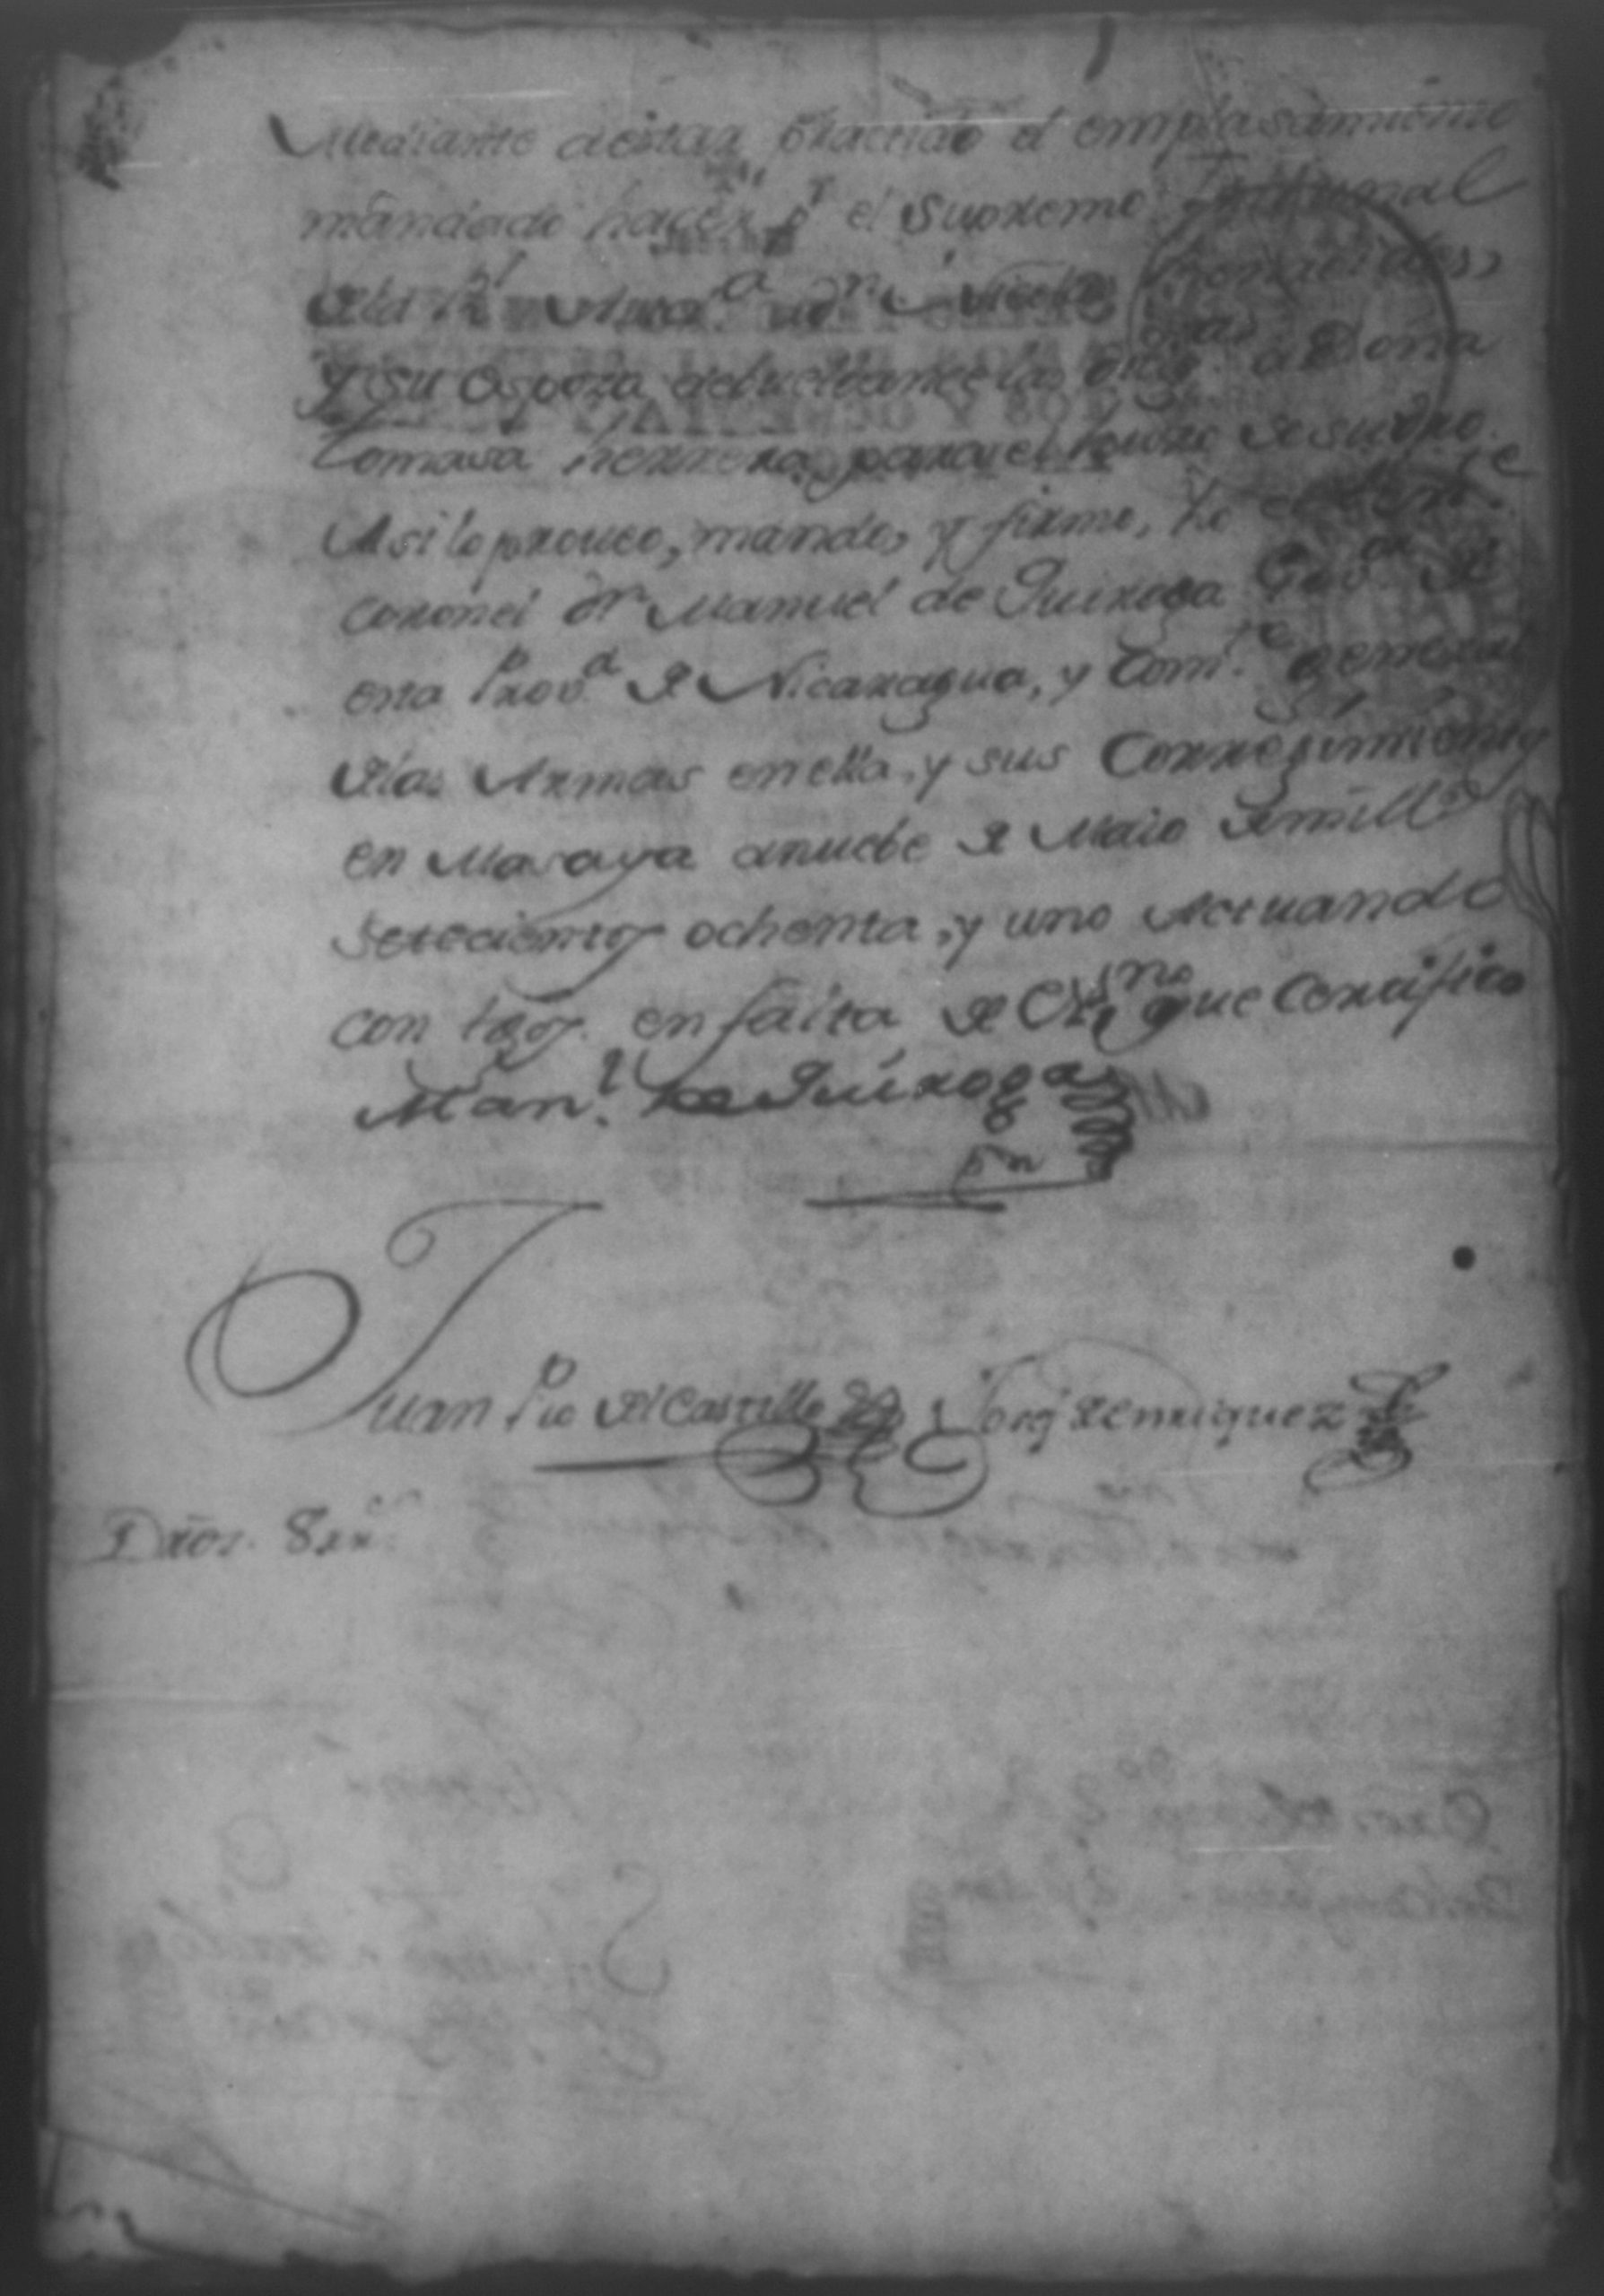 Mediante aestar practido el emplasamiento
mandado hacer pr. el Supremo Tribunal
dela Rl. Aud.a a Dn. Nicolas
y su esposa debuelbansele las orig.as a Doña
Tomasa herrera, para el de su dro.
Asi lo proueo, mando, y firmo, Yo el then.te
coronel Dn. Manuel de Quiroga Gov.or de
esta Prov.a de Nicaragua, y Com.te general
delas Armas en ella, y sus Corregimientos
en Masaya anuebe de Maio de mill
setecientos ochenta, y uno Actuando
con tgos. en falta de Essno. que Certifico
Man.l de Quiroga
Juan Pio del Castillo Jorg. de enrriquez
Dros. 8 rr.